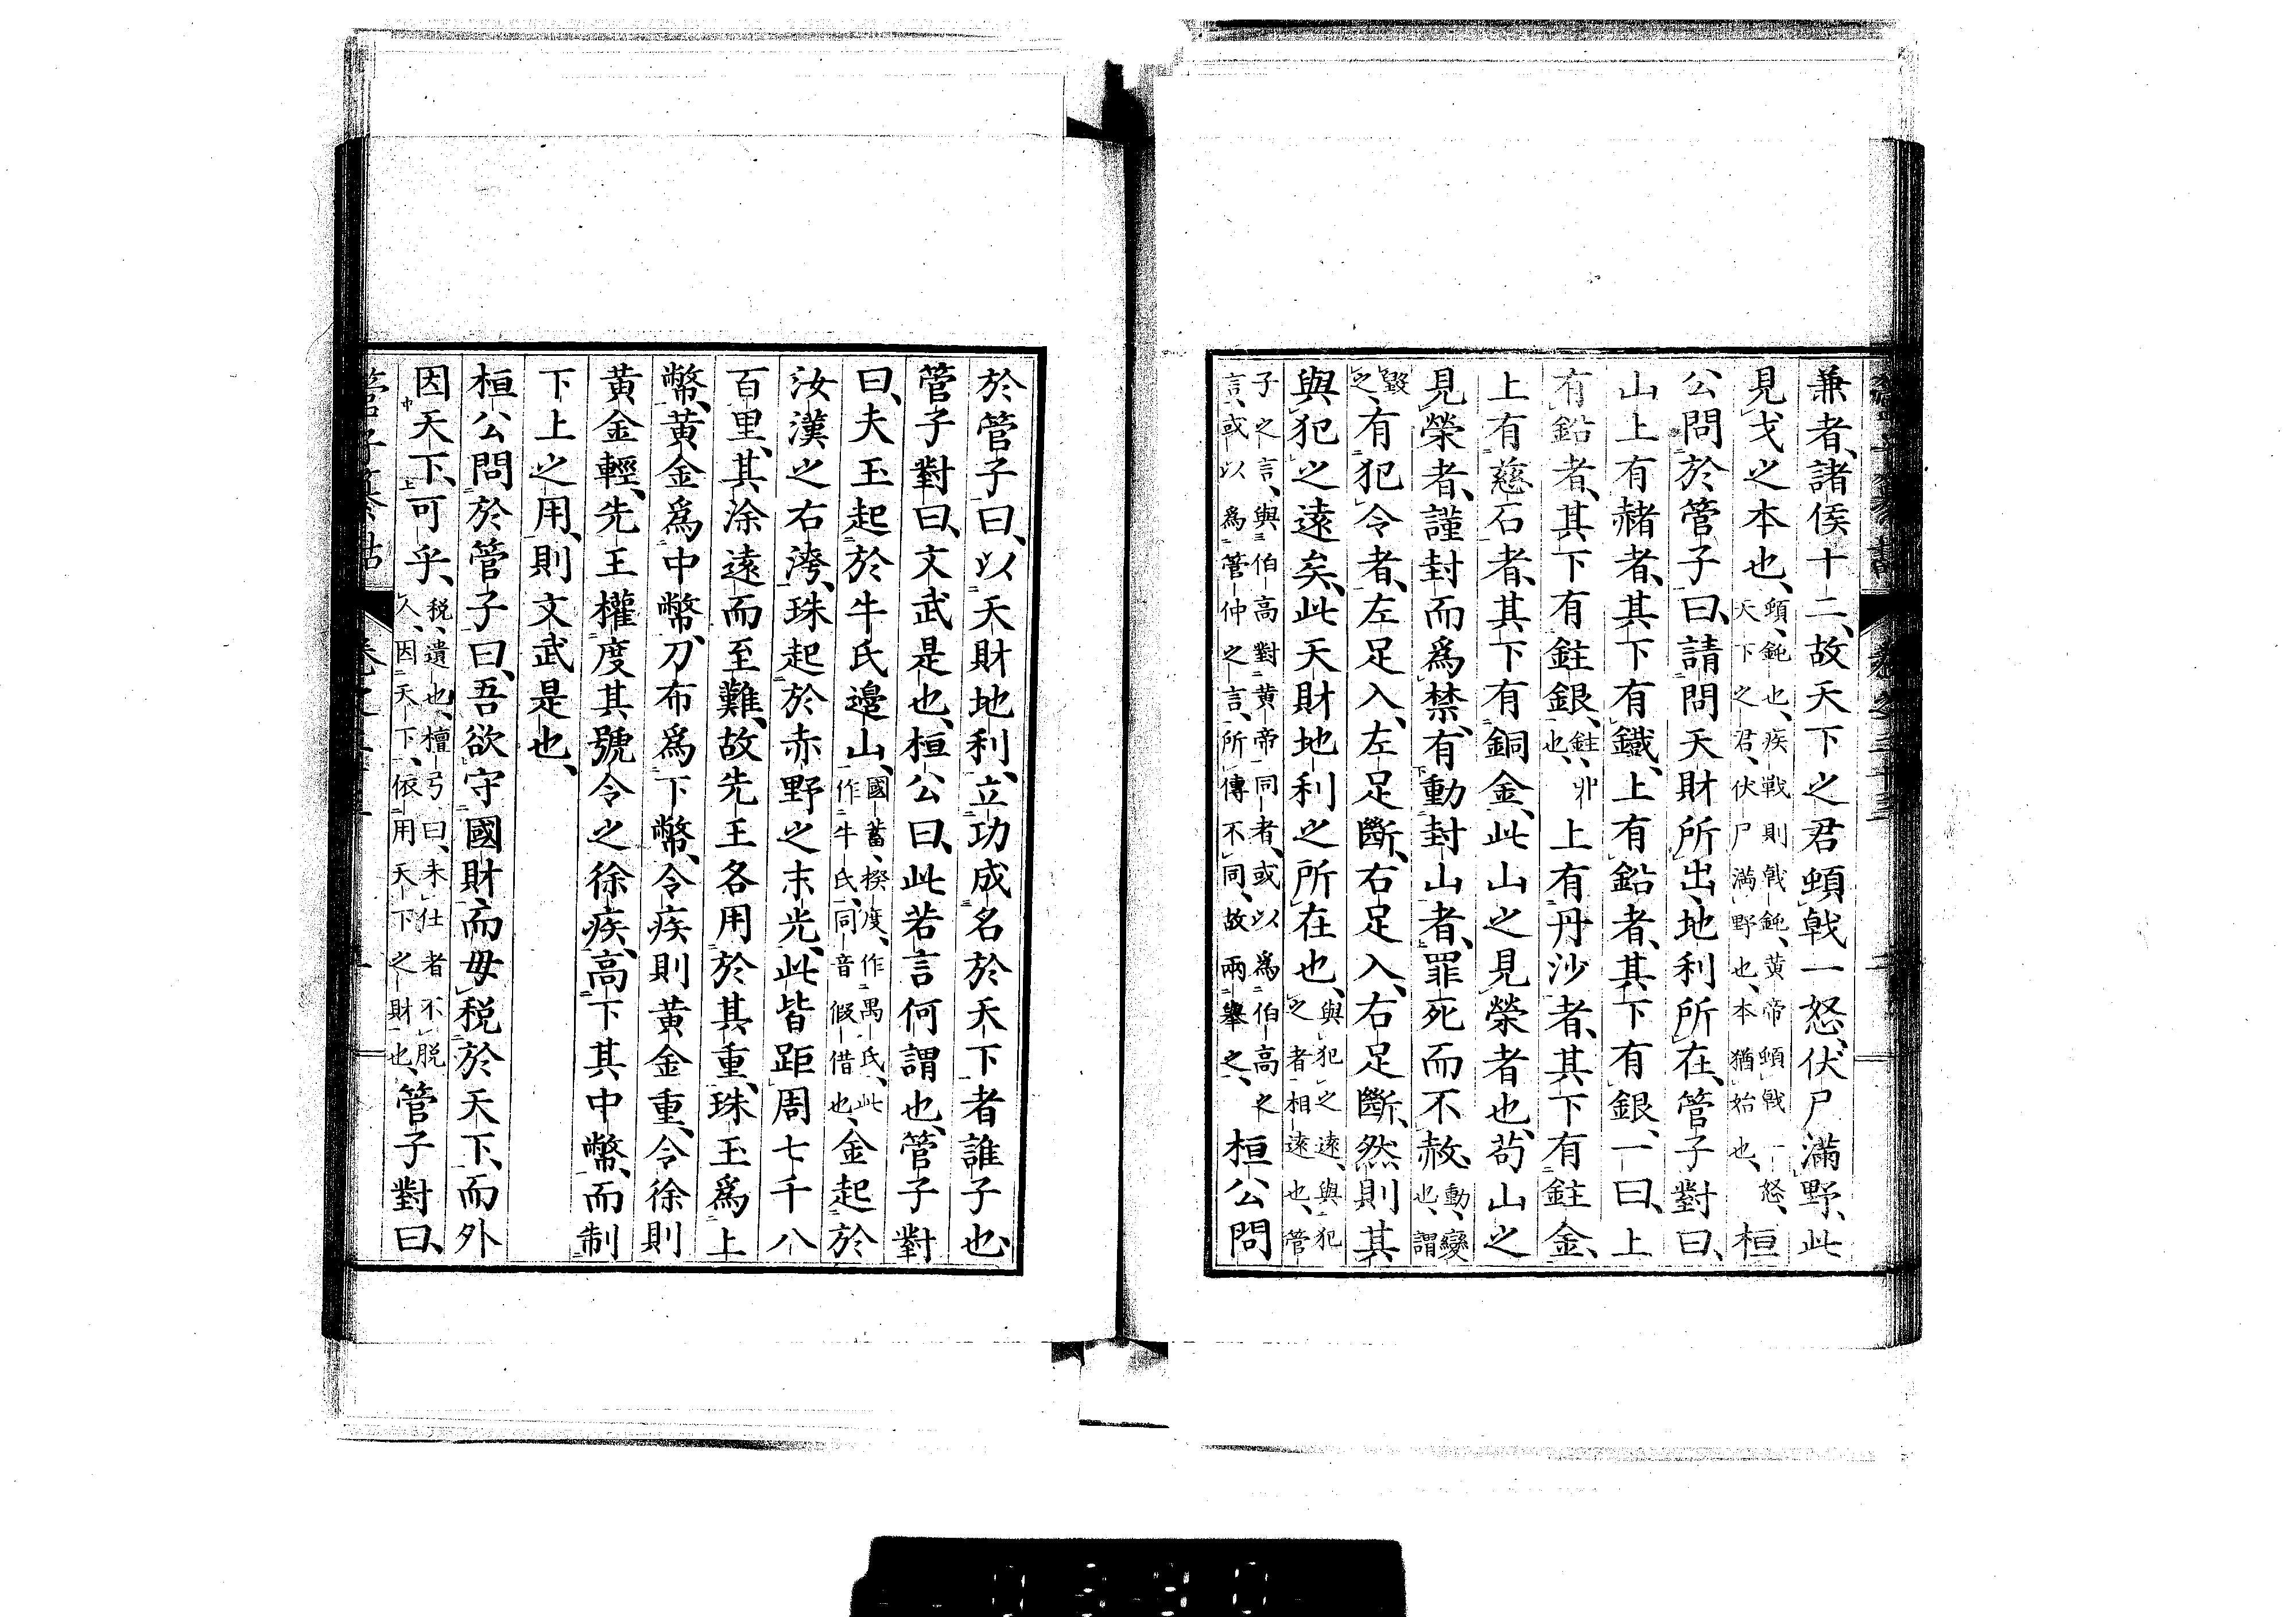 兼者、諸侯十二、故天下之君頓戟一怒、伏尸滿野、此
見戈之本也、頓、鈍也、疾戰則戟鈍、黃帝頓戟一怒、天下之君、伏尸滿野也、本猶始也、桓
公問於管子曰、請問天財所出、地利所在、管子對曰、
山上有赭者、其下有鐵、上有鉛者、其下有銀、一曰、上
有鉛者、其下有鉒銀、鉒、卝也、上有丹沙者、其下有鉒金、
上有慈石者、其下有銅金、此山之見榮者也、苟山之
見榮者、謹封而爲禁、有動封山者、罪死而不赦、動、變也、謂
毀之、有犯令者、左足入、左足斷、右足入、右足斷、然則其
與犯之遠矣、此天財地利之所在也、與犯之遠、與犯之者相遠也、管
子之言、與伯高對黃帝同者、或以爲伯高之言、或以爲管仲之言、所傳不同、故兩舉之、桓公問
於管子曰、以天財地利、立功成名於天下者誰子也、
管子對曰、文武是也、桓公曰、此若言何謂也、管子對
曰、夫玉起於牛氏邊山、國蓄、揆度、作禺氏、此作牛氏、同音假借也、金起於
汝漢之右洿、珠起於赤野之末光、此皆距周七千八
百里、其涂遠而至難、故先王各用於其重、珠玉爲上
幣、黃金爲中幣、刀布爲下幣、令疾則黃金重、令徐則
黃金輕、先王權度其號令之徐疾、高下其中幣、而制
下上之用、則文武是也、
桓公問於管子曰、吾欲守國財、而毋稅於天下、而外
因天下、可乎、稅、遺也、檀弓曰、未仕者不脫人、因天下、依用天下之財也、管子對曰、